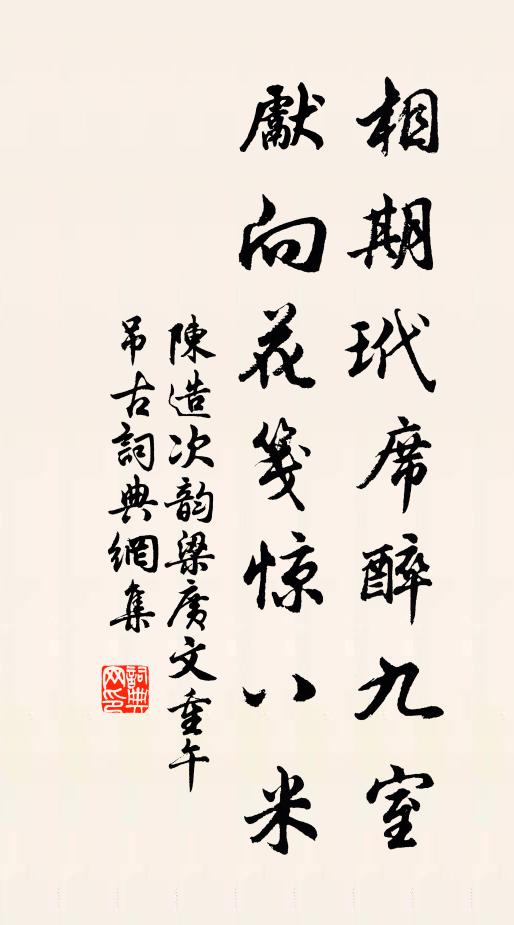 相期玳席醉九室
獻向花箋惊八米
陳造次韵梁廣文重午
吊古詞典網集
詞典網印